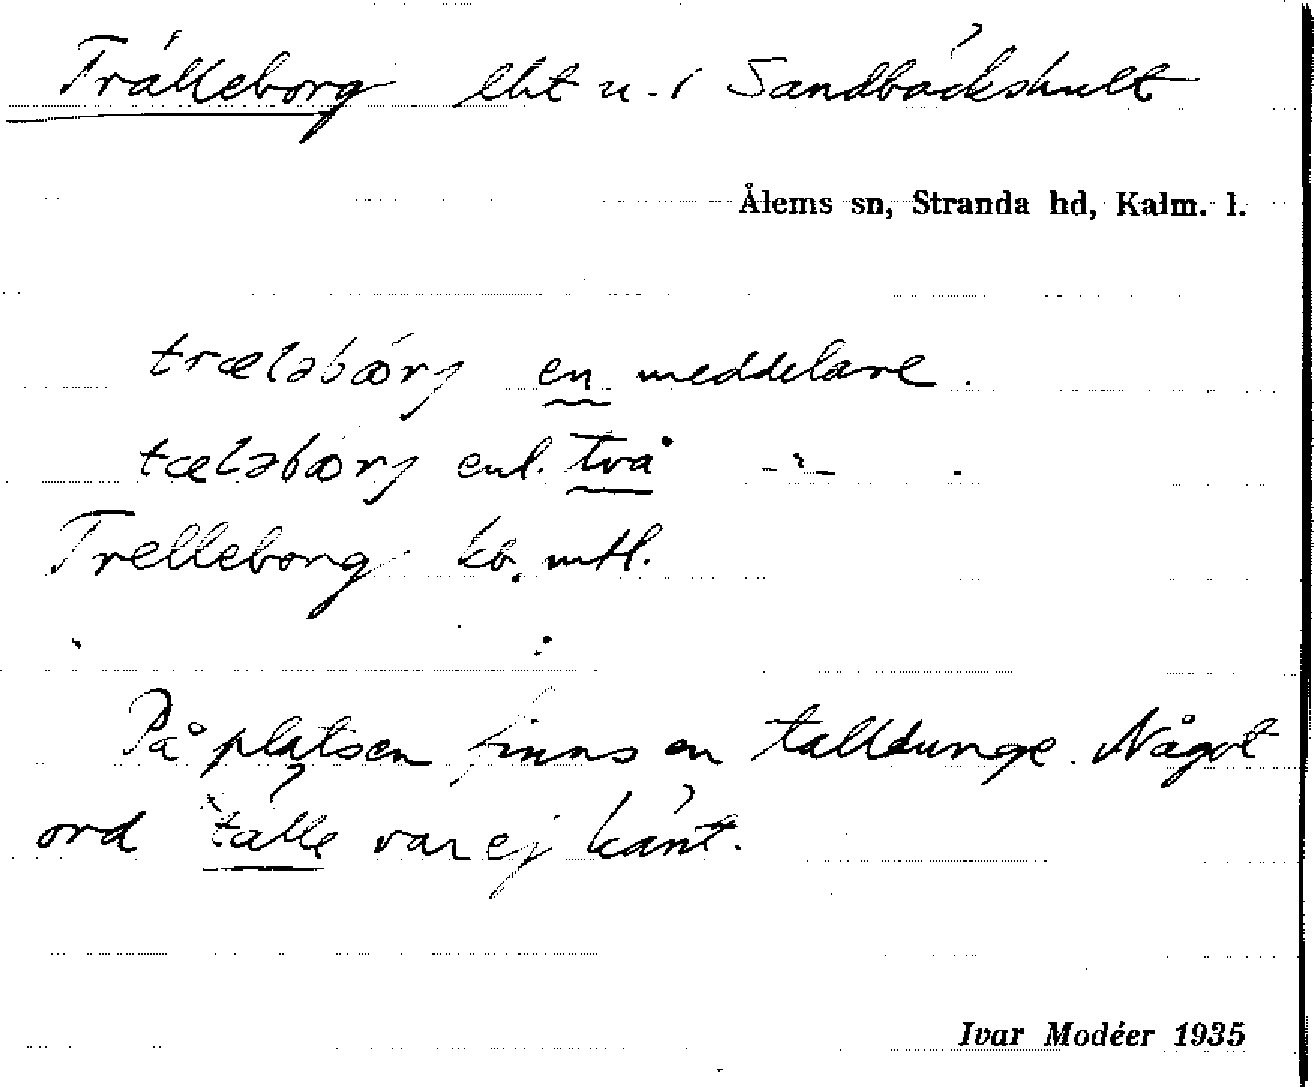 Trälleborg lht u. i Sandbäckshult
Ålems sn, Stranda hd, Kalm. l.
trælǝbórj en meddelare.
tælǝbórj enl. två -"- .
Trelleborg kb. mtl.
På platsen finns en talldunge. Något
ord tälle var ej känt.
Ivar Modéer 1935